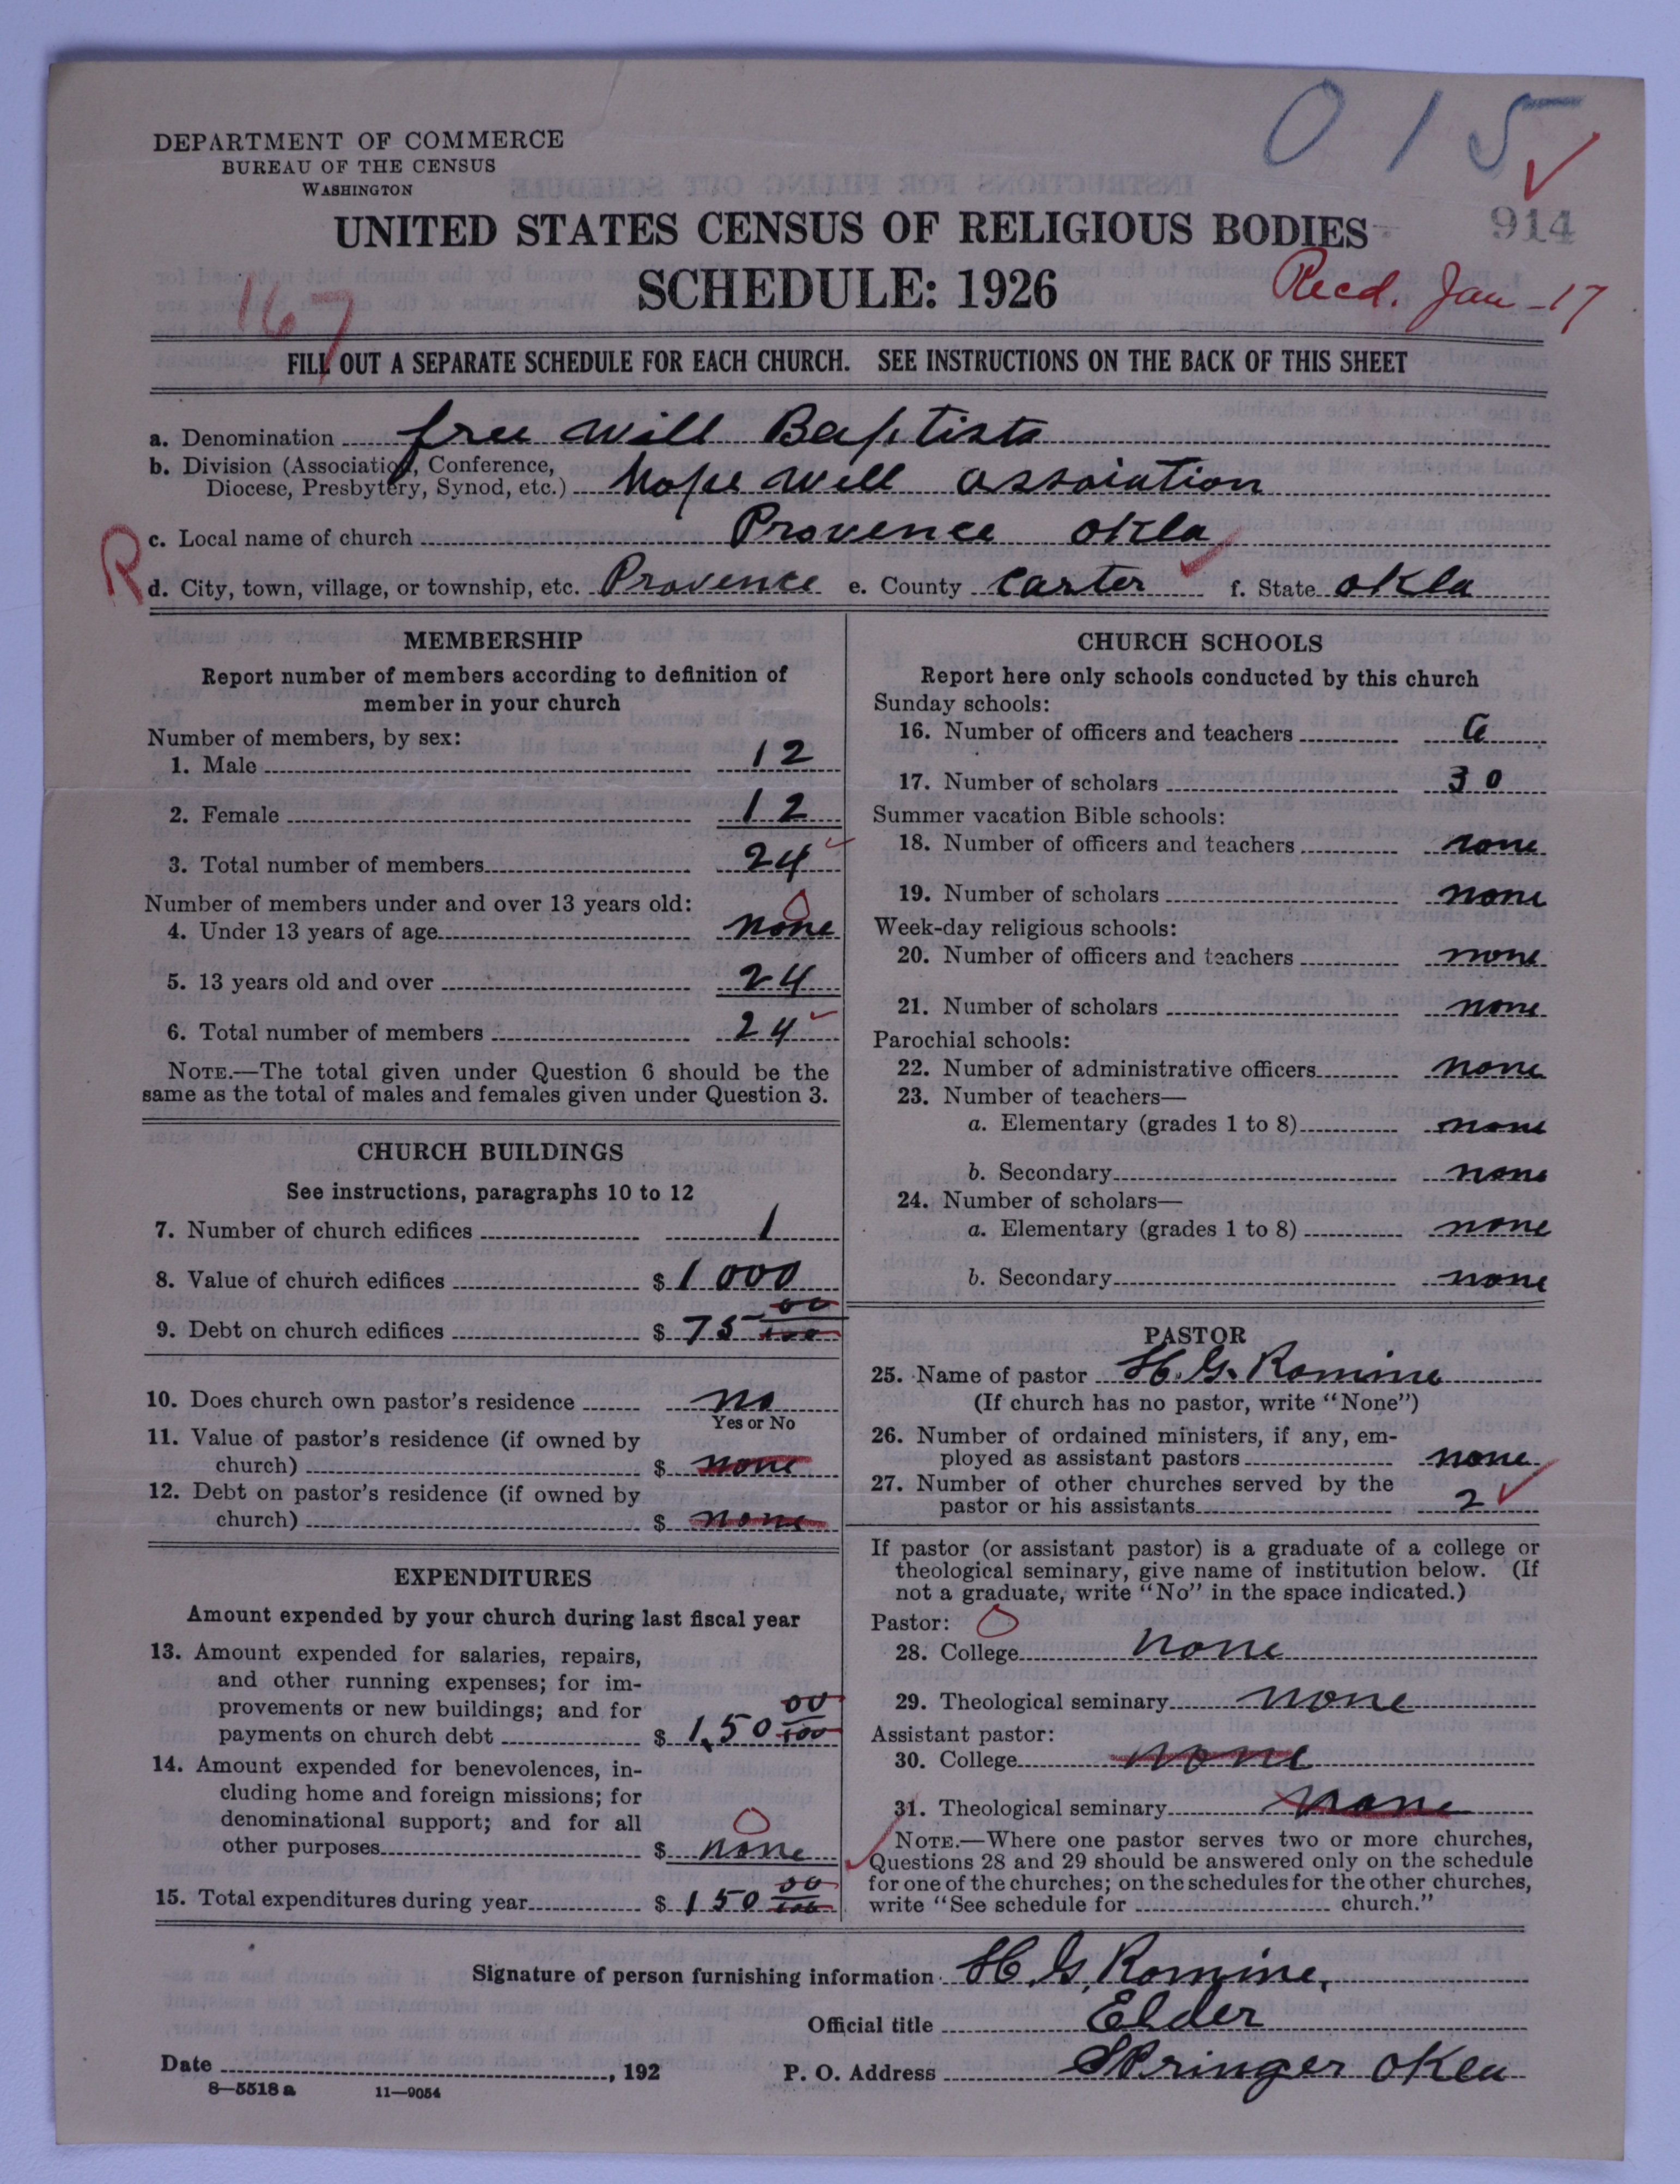 015
DEPARTMENT OF COMMERCE
BUREAU OF THE CENSUS
WASHINGTON
914
UNITED STATES CENSUS OF RELIGIOUS BODIES
SCHEDULE: 1926
Recd. Jan - 17
167
FILL OUT A SEPARATE SCHEDULE FOR EACH CHURCH. SEE INSTRUCTIONS ON THE BACK OF THIS SHEET
a. Denomination free will Baptists
b. Division (Association, Conference,
Diocese, Presbytery, Synod, etc.) hope well assoiation
R
c. Local name of church Provence okla
d. City, town, village, or township, etc. Provence e. County Carter f. State okla
MEMBERSHIP
Report number of members according to definition of
member in your church
Number of members, by sex:
1. Male 12
2. Female 12
3. Total number of members 24
Number of members under and over 13 years old:
4. Under 13 years of age none 0
5. 13 years old and over 24
6. Total number of members 24
NOTE.—The total given under Question 6 should be the
same as the total of males and females given under Question 3.
CHURCH BUILDINGS
See instructions, paragraphs 10 to 12
7. Number of church edifices 1
8. Value of church edifices $ 1000
9. Debt on church edifices $ 75 00/100
10. Does church own pastor's residence no
Yes or No
11. Value of pastor's residence (if owned by
church) $ none
12. Debt on pastor's residence (if owned by
church) $ none
EXPENDITURES
Amount expended by your church during last fiscal year
13. Amount expended for salaries, repairs,
and other running expenses; for im-
provements or new buildings; and for
payments on church debt $ 150 00/100
14. Amount expended for benevolences, in-
cluding home and foreign missions; for
denominational support; and for all
other purposes $ none 0
15. Total expenditures during year $ 150 00/100
CHURCH SCHOOLS
Report here only schools conducted by this church
Sunday schools:
16. Number of officers and teachers 6
17. Number of scholars 30
Summer vacation Bible schools:
18. Number of officers and teachers none
19. Number of scholars none
Week-day religious schools:
20. Number of officers and teachers none
21. Number of scholars none
Parochial schools:
22. Number of administrative officers none
23. Number of teachers—
a. Elementary (grades 1 to 8) none
b. Secondary none
24. Number of scholars—
a. Elementary (grades 1 to 8) none
b. Secondary none
PASTOR
25. Name of pastor H. G. Romine
(If church has no pastor, write "None")
26. Number of ordained ministers, if any, em-
ployed as assistant pastors none
27. Number of other churches served by the
pastor or his assistants 2
If pastor (or assistant pastor) is a graduate of a college or
theological seminary, give name of institution below. (If
not a graduate, write "No" in the space indicated.)
Pastor: 0
28. College none
29. Theological seminary none
Assistant pastor:
30. College none
31. Theological seminary none
NOTE.—Where one pastor serves two or more churches,
Questions 28 and 29 should be answered only on the schedule
for one of the churches; on the schedules for the other churches,
write "See schedule for church."
Signature of person furnishing information H. G. Romine,
Official title Elder
Date , 192 P. O. Address Springer okla
8—5518 a 11—9054